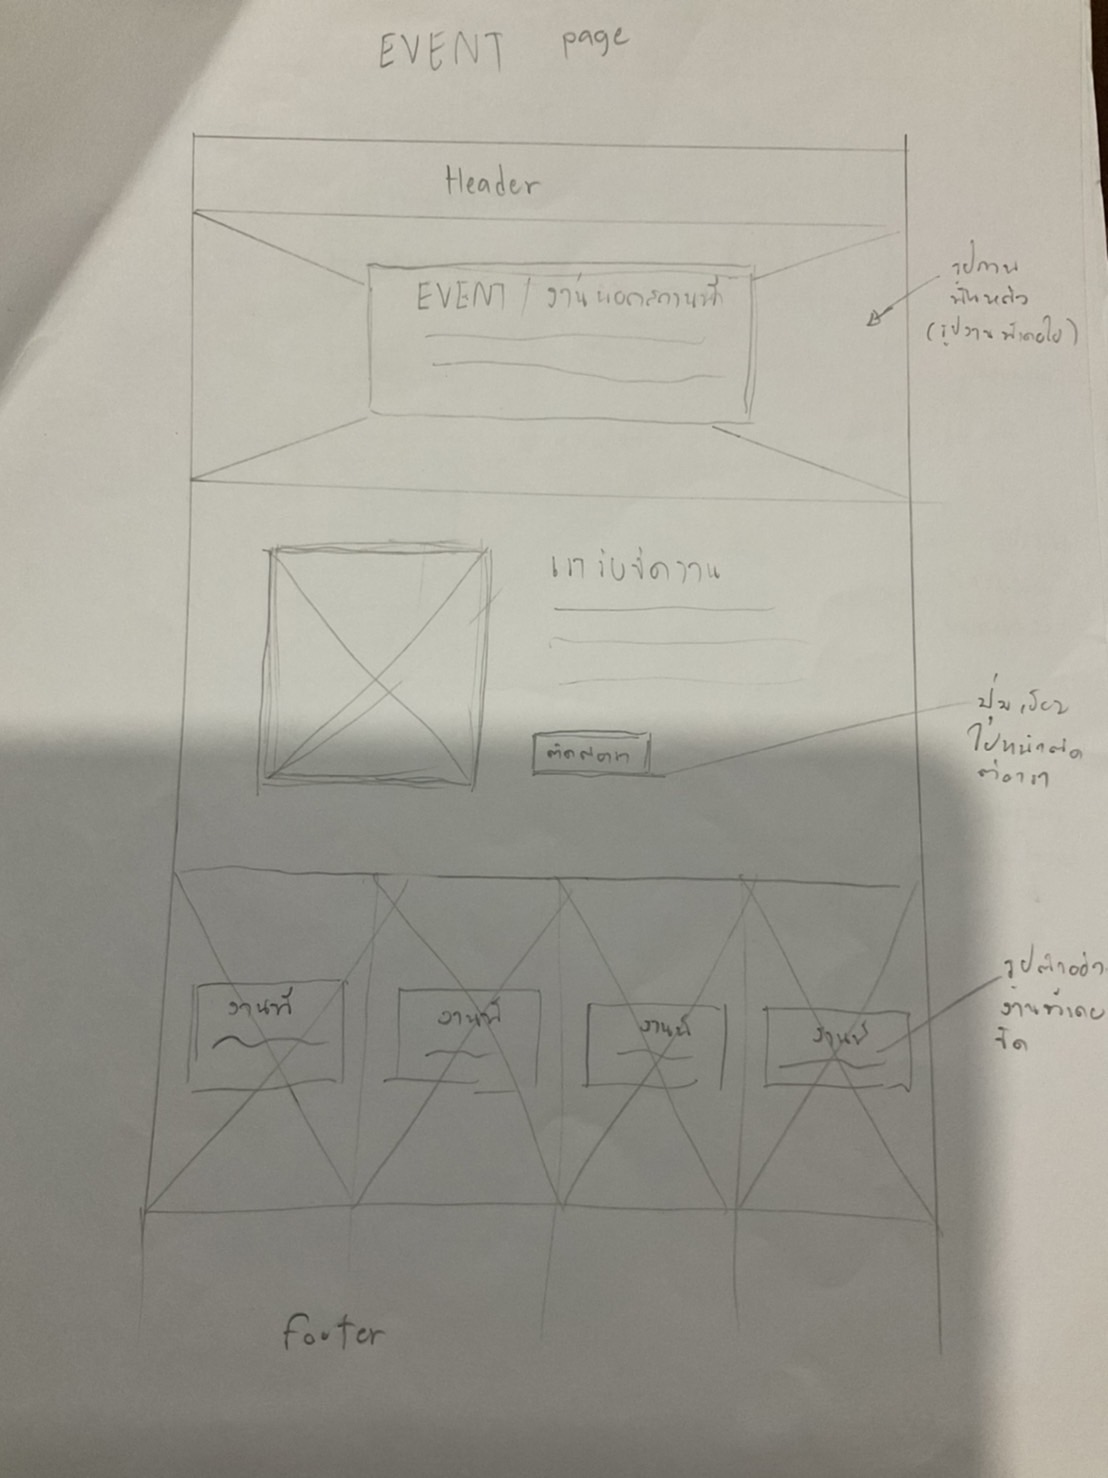 EVENT page
Header
EVENT / งานนอกสถานที่
รูปภาพ
พื้นหลัง
(รูปงานที่เคยไป)
เรารับจัดงาน
ติดต่อเรา
ปุ่ม
ไปหน้าติด
ต่อเรา
งานที่
งานที่
งานที่
งานที่
รูปตัวอย่าง
งานที่เคย
จัด
footer